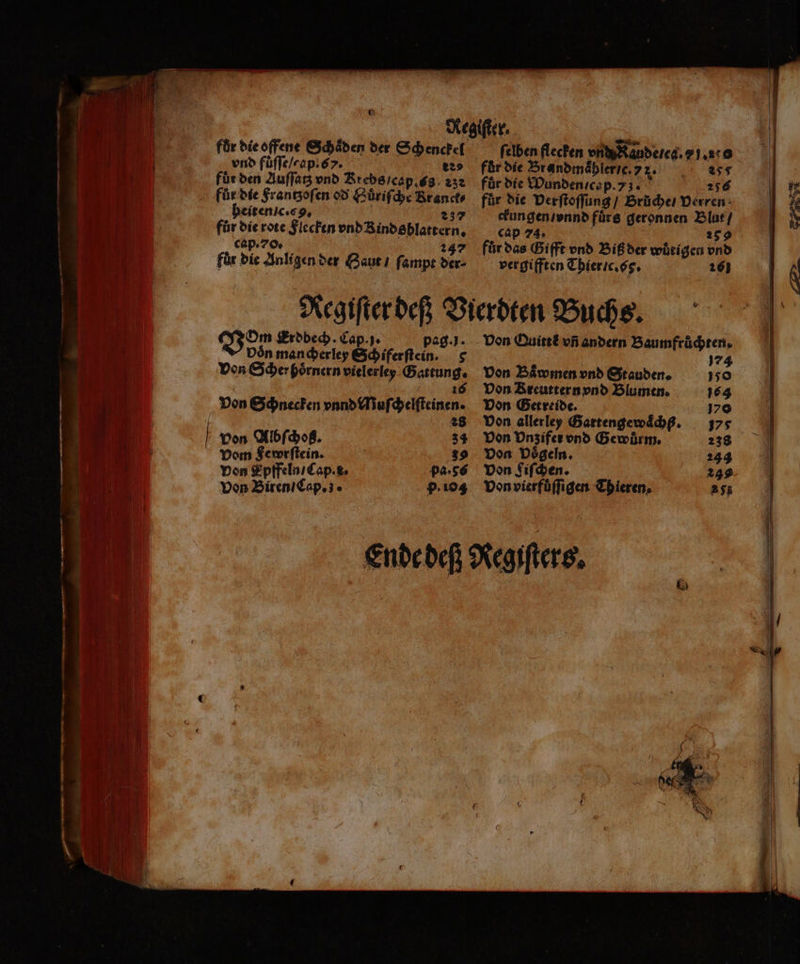 Regiſter.
für die offene Schåden der Schenckel
vnd fuͤſſe/cap. 67. 229
fuͤr den Auſſatz vnd Krebs/cap. 68. 232
fuͤr die Frantzoſen od Huͤriſche Kranck⸗
heiten/c. 69. 237
fuͤr die rote Flecken vnd Kindsblattern.
cap. 70. 247
fuͤr die Anligen der Haut / ſampt der⸗
ſelben flecken vnd Raude/ca. 71. 250
fuͤr die Brandmaͤhler/c. 72. 255
fuͤr die Wunden/cap. 73. 256
fuͤr die Verſtoſſung / Bruͤche/ Verren⸗
ckungen/vnnd fuͤrs geronnen Blut /
cap 74. 259
fuͤr das Gifft vnd Biß der wuͤtigen vnd
vergifften Thier/c. 65. 263
Regiſter deß Vierdten Buchs.
VOm Erdbech. Cap. j. pag. j.
Von mancherley Schiferſtein. 5
Von Scherhoͤrnern vielerley Gattung.
16
Von Schnecken vnnd Muſchelſteinen.
28
Von Albſchoß. 34
Vom Fewrſtein. 39
Von Epffeln/ Cap. 2. pa. 56
Von Biren/ Cap. 3. p. 104
Von Quittẽ vñ andern Baumfruͤchten.
174
Von Baͤwmen vnd Stauden. 150
Von Kreuttern vnd Blumen. 164
Von Getreide. 170
Von allerley Gartengewaͤchß. 175
Von Vnzifer vnd Gewuͤrm. 238
Von Voͤgeln. 244
Von Fiſchen. 249
Von vierfuͤſſigen Thieren.
Ende deß Regiſters.